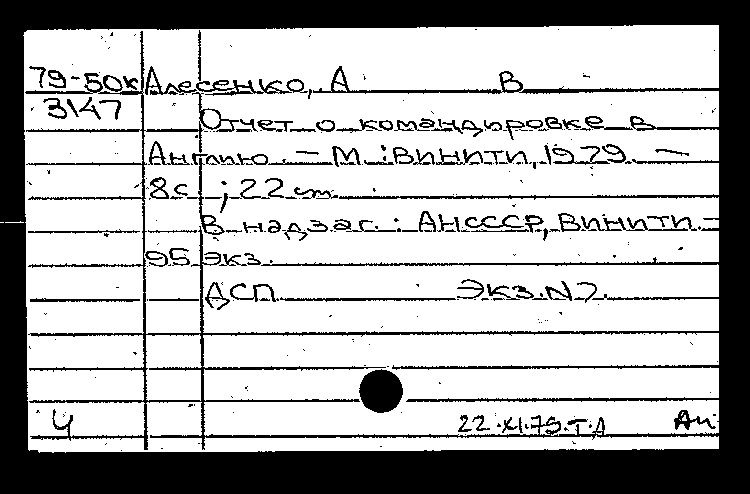 79-50к Алесенко, А В
3147 Отчет о командировке в
Англию. — М.: ВИНИТИ, 1979. —
8с ; 22 см.
В надзаг.: АНСССР, ВИНИТИ. —
95 экз.
ДСП Экз. N 7.
Ч 22.XI.79.Т.Д Ан